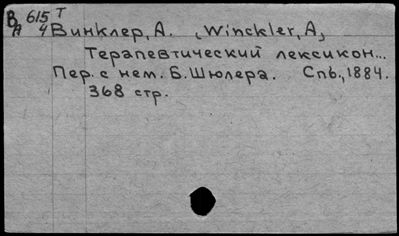 В 615 Т
А 4 Винклер, А. (Winckler, A)
Терапевтический лексикон...
Пер. с нем. Б. Шюлера. Спб., 1884.
368 стр.